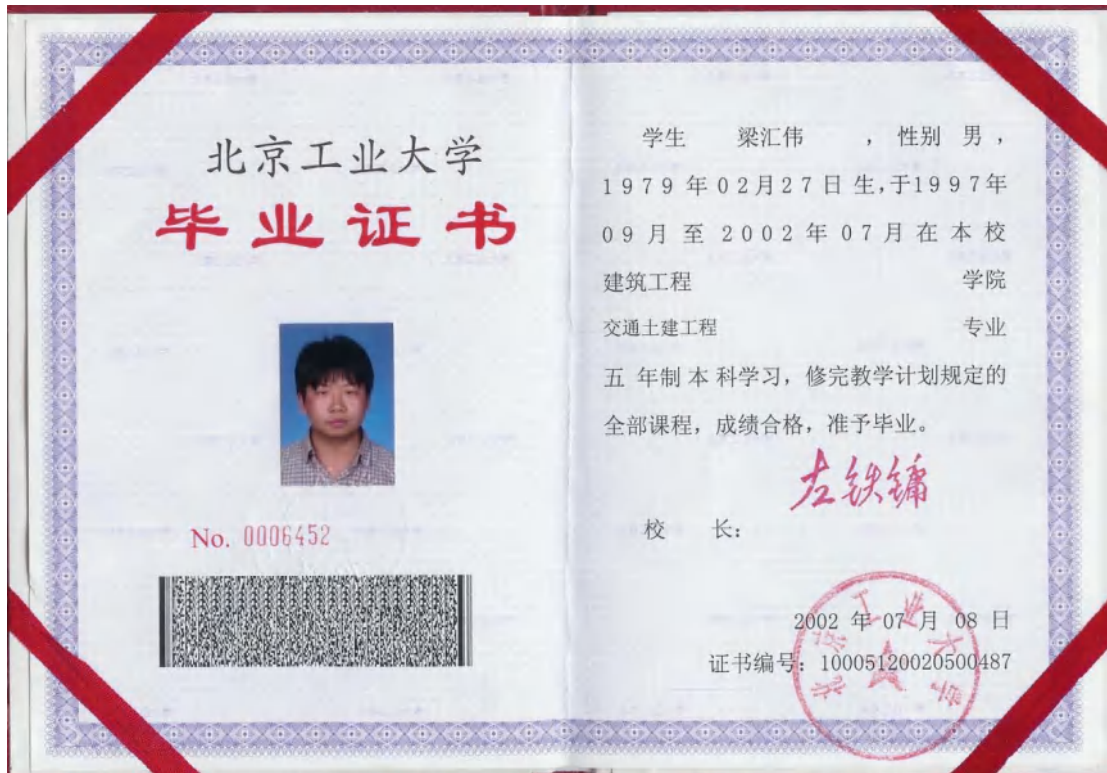 北京工业大学
毕业证书
No. 0006452
学生 梁汇伟 ，性别 男，
1979年02月27日生,于1997年
09月至2002年07月在本校
建筑工程 学院
交通土建工程 专业
五 年制 本 科学习，修完教学计划规定的
全部课程，成绩合格，准予毕业。
左铁镛
校 长：
2002 年 07 月 08 日
证书编号：100051200205004​87
北京工业大学